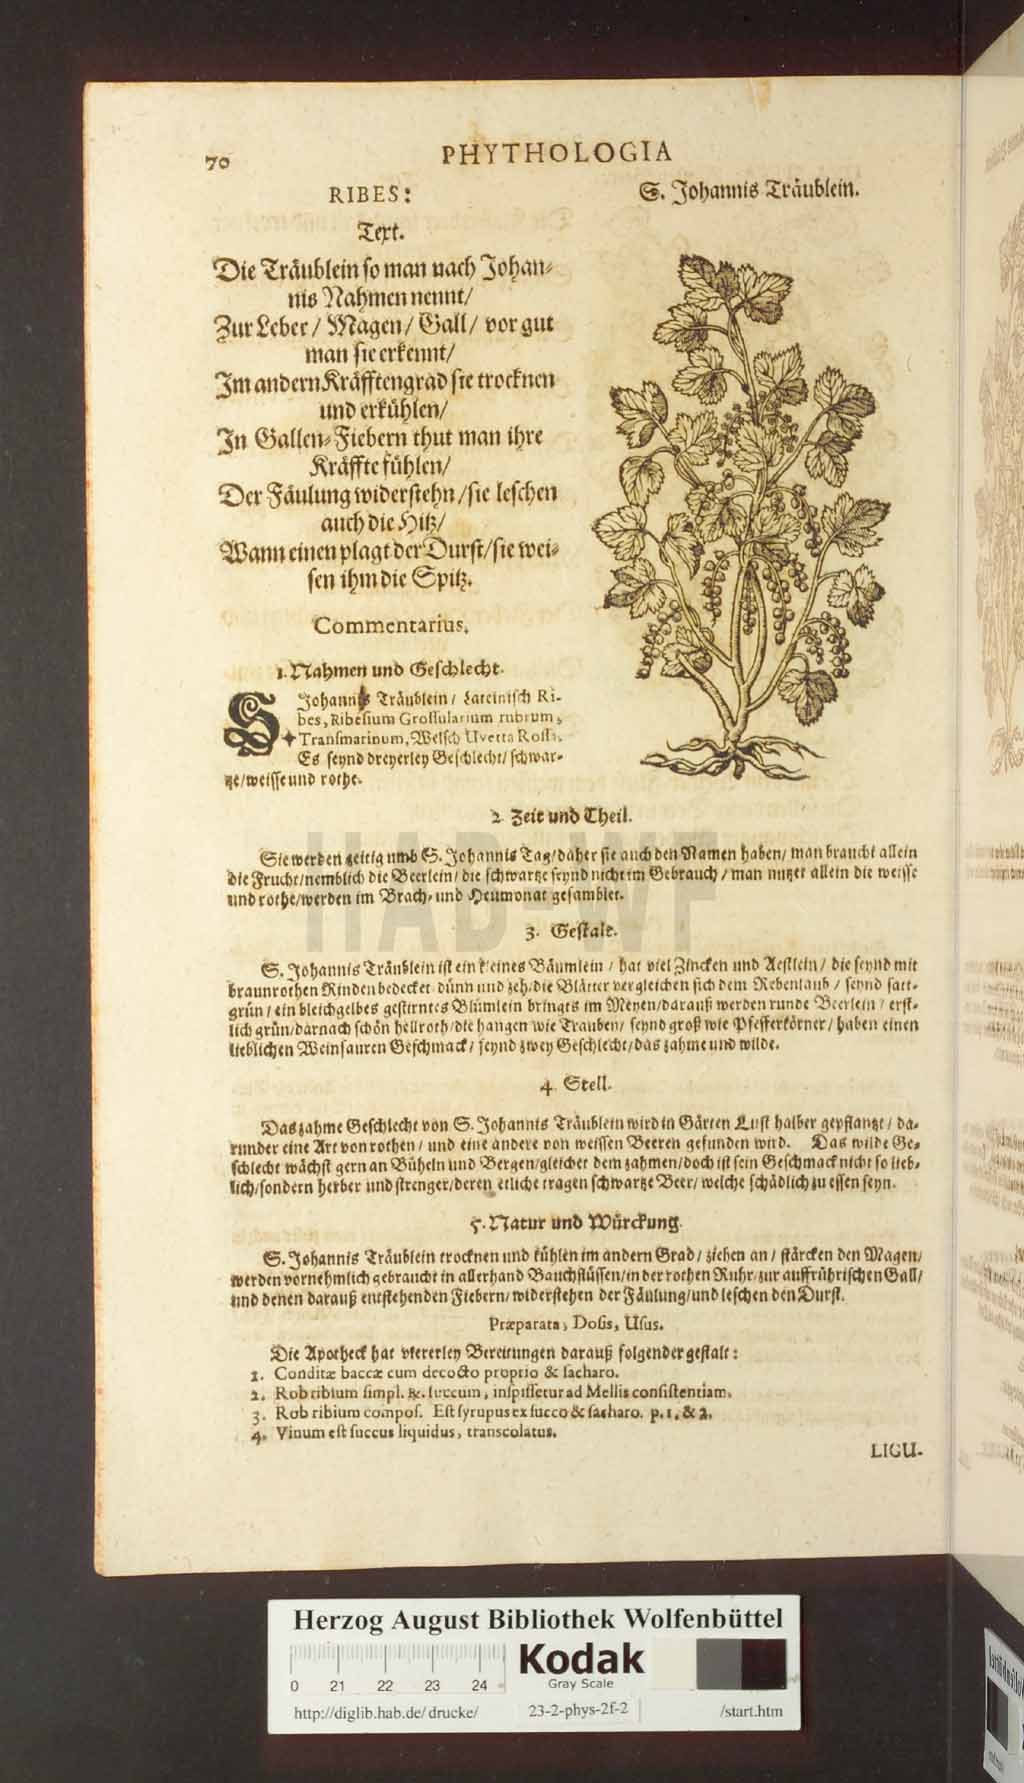 70
PHYTHOLOGIA
RIBES:
S. Johannis Träublein.
Text.
Die Träublein so man nach Johan-
nis Nahmen nennt/
Zur Leber/ Magen/ Gall/ vor gut
man sie erkennt/
Im andern Kräfftengrad sie trocknen
und erkühlen/
In Gallen-Fiebern thut man ihre
Kräffte fühlen/
Der Fäulung widerstehn/ sie leschen
auch die Hitz/
Wann einen plagt der Durst/ sie wei-
sen ihm die Spitz.
Commentarius.
1. Nahmen und Geschlecht.
S. Johannis Träublein/ Lateinisch Ri-
bes, Ribesium Grossularium rubrum,
Transmarinum, Welsch Uvetta Rossa.
Es seynd dreyerley Geschlecht/ schwar-
tze/ weisse und rothe.
2. Zeit und Theil.
Sie werden zeitig umb S. Johannis Tag/ daher sie auch den Namen haben/ man braucht allein
die Frucht/ nemblich die Beerlein/ die schwartze seynd nicht im Gebrauch/ man nutzet allein die weisse
und rothe/ werden im Brach- und Heumonat gesamblet.
3. Gestalt.
S. Johannis Träublein ist ein kleines Bäumlein/ hat viel Zincken und Aestlein/ die seynd mit
braunrothen Rinden bedecket dünn und zeh/ die Blätter vergleichen sich dem Rebenlaub/ seynd satt-
grün/ ein bleichgelbes gestirntes Blümlein bringts im Meyen/ darauß werden runde Beerlein/ erst-
lich grün/ darnach schön hellroth/ die hangen wie Trauben/ seynd groß wie Pfefferkörner/ haben einen
lieblichen Weinsauren Geschmack/ seynd zwey Geschlecht/ das zahme und wilde.
4. Stell.
Das zahme Geschlecht von S. Johannis Träublein wird in Gärten Lust halber gepflantzt/ da-
runder eine Art von rothen/ und eine andere von weissen Beeren gefunden wird. Das wilde Ge-
schlecht wächst gern an Büheln und Bergen/ gleichet dem zahmen/ doch ist sein Geschmack nicht so lieb-
lich/ sondern herber und strenger/ deren etliche tragen schwartze Beer/ welche schädlich zu essen seyn.
5. Natur und Würckung.
S. Johannis Träublein trocknen und kühlen im andern Grad/ ziehen an/ stärcken den Magen/
werden vornehmlich gebraucht in allerhand Bauchflüssen/ in der rothen Ruhr/ zur auffrührischen Gall/
und denen darauß entstehenden Fiebern/ widerstehen der Fäulung/ und leschen den Durst.
Præparata, Dosis, Usus.
Die Apotheck hat viererley Bereitungen darauß folgender gestalt:
1. Conditæ baccæ cum decocto proprio & sacharo.
2. Rob ribium simpl. &. succum, inspissetur ad Mellis consistentiam.
3. Rob ribium compos. Est syrupus ex succo & sacharo. p. 1. & 2.
4. Vinum est succus liquidus, transcolatus.
LIGU-
HAB-WF
Herzog August Bibliothek Wolfenbüttel
Kodak
Gray Scale
0 21 22 23 24
http://diglib.hab.de/drucke/
23-2-phys-2f-2
/start.htm